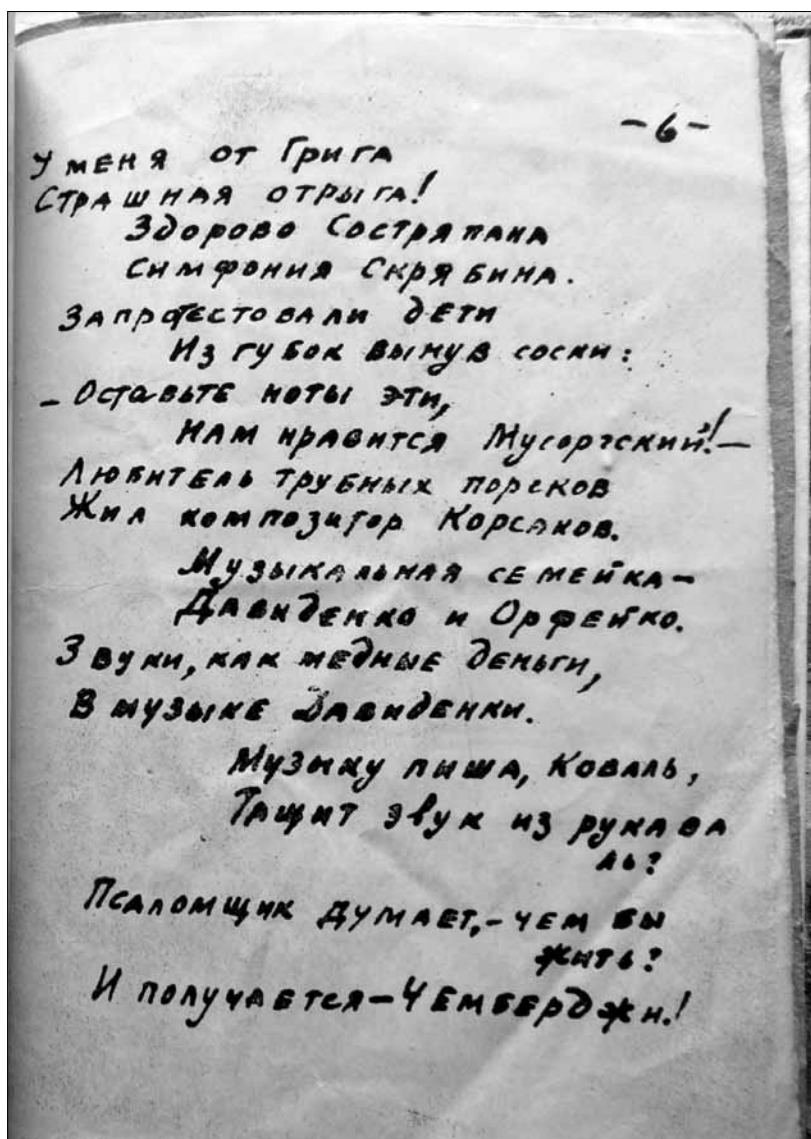 -6-
У меня от Грига
Страшная отрыга!
Здорово Состряпана
Симфония Скрябина.
Запротестовали дети
Из губок вынув соски:
- Оставьте ноты эти,
Нам нравится Мусоргский! -
Любитель трубных порсков
Жил композитор Корсаков.
Музыкальная семейка -
Давиденко и Орфейко.
Звуки, как медные деньги,
В музыке Давиденки.
Музыку пиша, Коваль,
Тащит звук из рукава
ль?
Псаломщик думает, - чем бы
жить?
И получается - Чемберджи!